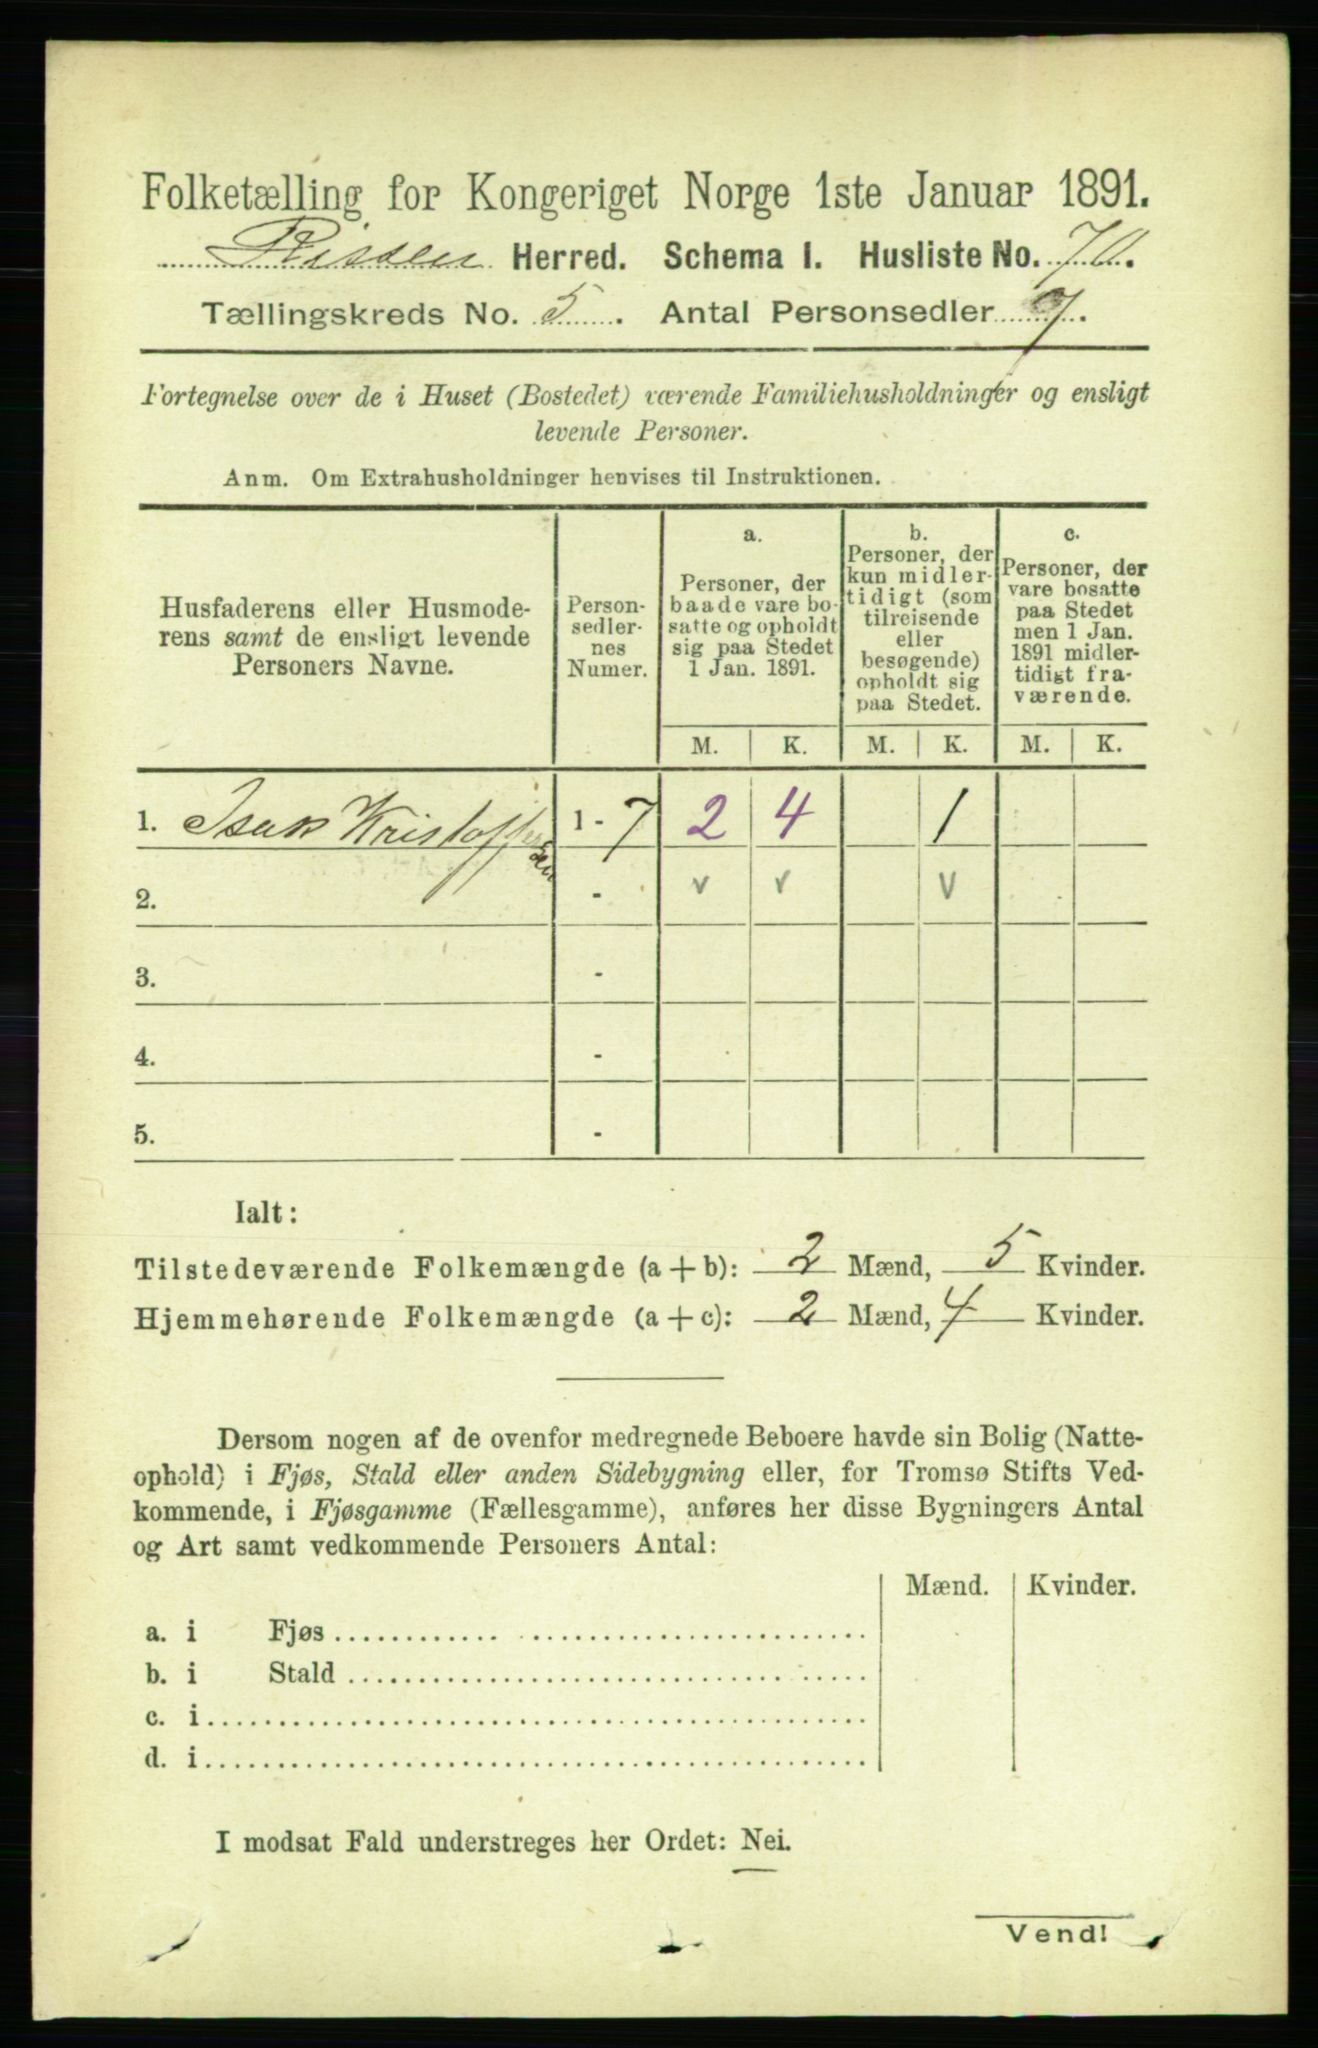 Folketælling for Kongeriget Norge 1ste Januar 1891.
Rissen Herred. Schema I. Husliste No. 70.
Tællingskreds No. 5. Antal Personsedler 7.
Fortegnelse over de i Huset (Bostedet) værende Familiehusholdninger og ensligt
levende Personer.
Anm. Om Extrahusholdninger henvises til Instruktionen.
Husfaderens eller Husmode-
rens samt de ensligt levende
Personers Navne.
Person-
sedler-
nes
Numer.
a.
Personer, der
baade vare bo-
satte og opholdt
sig paa Stedet
1 Jan. 1891.
b.
Personer, der
kun midler-
tidigt (som
tilreisende
eller
besøgende)
opholdt sig
paa Stedet.
c.
Personer, der
vare bosatte
paa Stedet
men 1 Jan.
1891 midler-
tidigt fra-
værende.
M. K. M. K. M. K.
1. Isak Kristoffersen 1 - 7 2 4 1
2. - v v v
3. -
4. -
5. -
Ialt:
Tilstedeværende Folkemængde (a + b): 2 Mænd, 5 Kvinder.
Hjemmehørende Folkemængde (a + c): 2 Mænd, 4 Kvinder.
Dersom nogen af de ovenfor medregnede Beboere havde sin Bolig (Natte-
ophold) i Fjøs, Stald eller anden Sidebygning eller, for Tromsø Stifts Ved-
kommende, i Fjøsgamme (Fællesgamme), anføres her disse Bygningers Antal
og Art samt vedkommende Personers Antal:
Mænd. Kvinder.
a. i Fjøs
b. i Stald
c. i
d. i
I modsat Fald understreges her Ordet: Nei.
Vend!